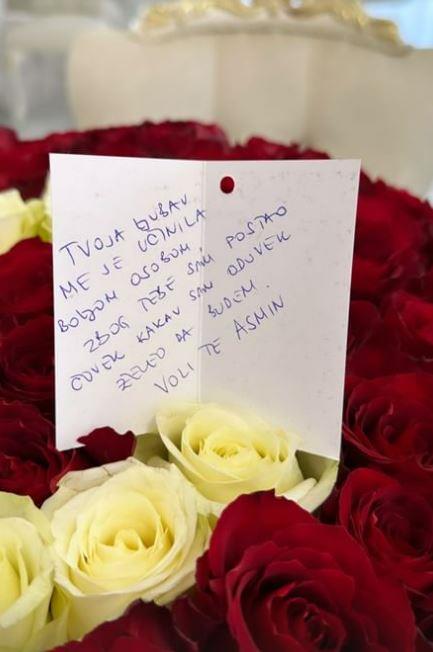 TVOJA LJUBAV
ME JE UČINILA
BOLJOM OSOBOM
ZBOG TEBE SAM POSTAO
ČOVEK KAKAV SAM ODUVEK
ŽELEO DA BUDEM.
VOLI TE ASMIN